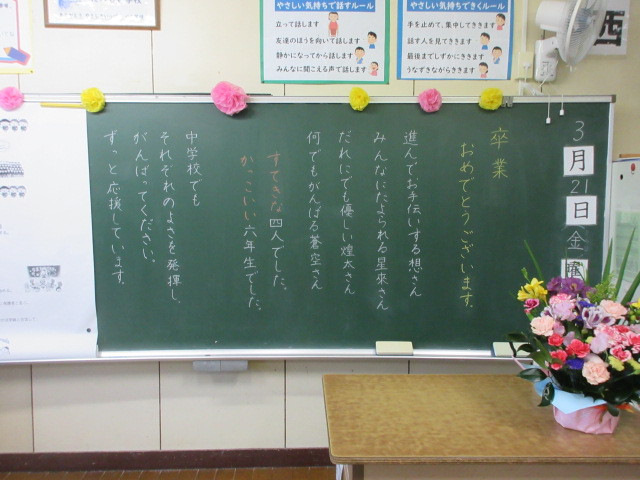 やさしい気持ちで話すルール
立って話します
友達のほうを向いて話します
静かになってから話します
みんなに聞こえる声で話します
やさしい気持ちできくルール
手を止めて、集中してききます
話す人を見てききます
最後までしずかにききます
うなずきながらききます
西
3月21日金曜
卒業
おめでとうございます。
進んでお手伝いする想さん
みんなにたよられる星來さん
だれにでも優しい煌太さん
何でもがんばる蒼空さん
すてきな四人でした。
かっこいい六年生でした。
中学校でも
それぞれのよさを発揮し、
がんばってください。
ずっと応援しています。